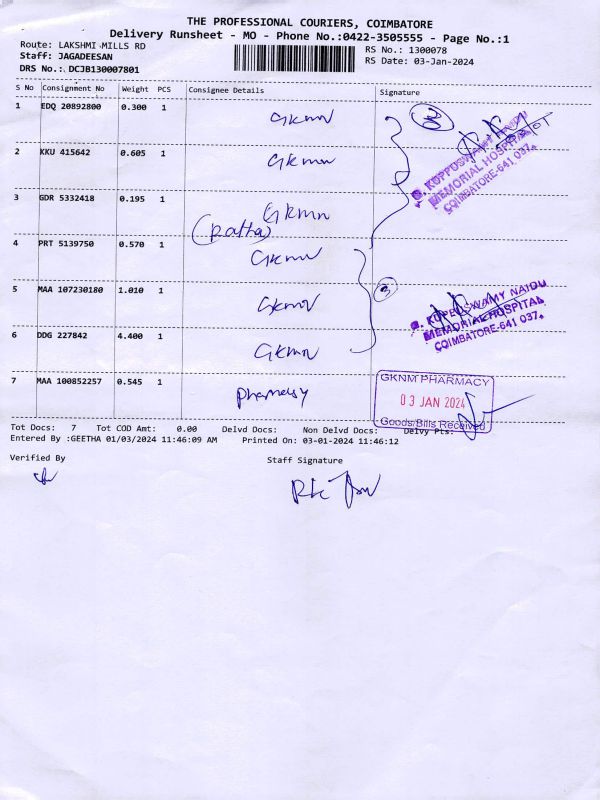 THE PROFESSIONAL COURIERS, COIMBATORE
Delivery Runsheet - MO - Phone No.:0422-3505555 - Page No.:1
Route: LAKSHMI MILLS RD
RS No.: 1300078
Staff: JAGADEESAN
RS Date: 03-Jan-2024
DRS No.: DCJB130007801
S No Consignment No Weight PCS Consignee Details Signature
1 EDQ 20892800 0.300 1 GKMN
2 KKU 415642 0.605 1 GKMN
3 GDR 5332418 0.195 1 GKMN
4 PRT 5139750 0.570 1 GKMN
5 MAA 107230180 1.010 1 GKMN
6 DDG 227842 4.400 1 GKMN
7 MAA 100852257 0.545 1 pharmacy
3
G. KUPPUSWAMY NAIDU
MEMORIAL HOSPITAL
COIMBATORE-641 037.
3
G. KUPPUSWAMY NAIDU
MEMORIAL HOSPITAL
COIMBATORE-641 037.
GKNM PHARMACY
03 JAN 2024
Goods/Bills Received
Tot Docs: 7 Tot COD Amt: 0.00 Delvd Docs: Non Delvd Docs: Delvy Pts:
Entered By :GEETHA 01/03/2024 11:46:09 AM Printed On: 03-01-2024 11:46:12
Verified By
Staff Signature